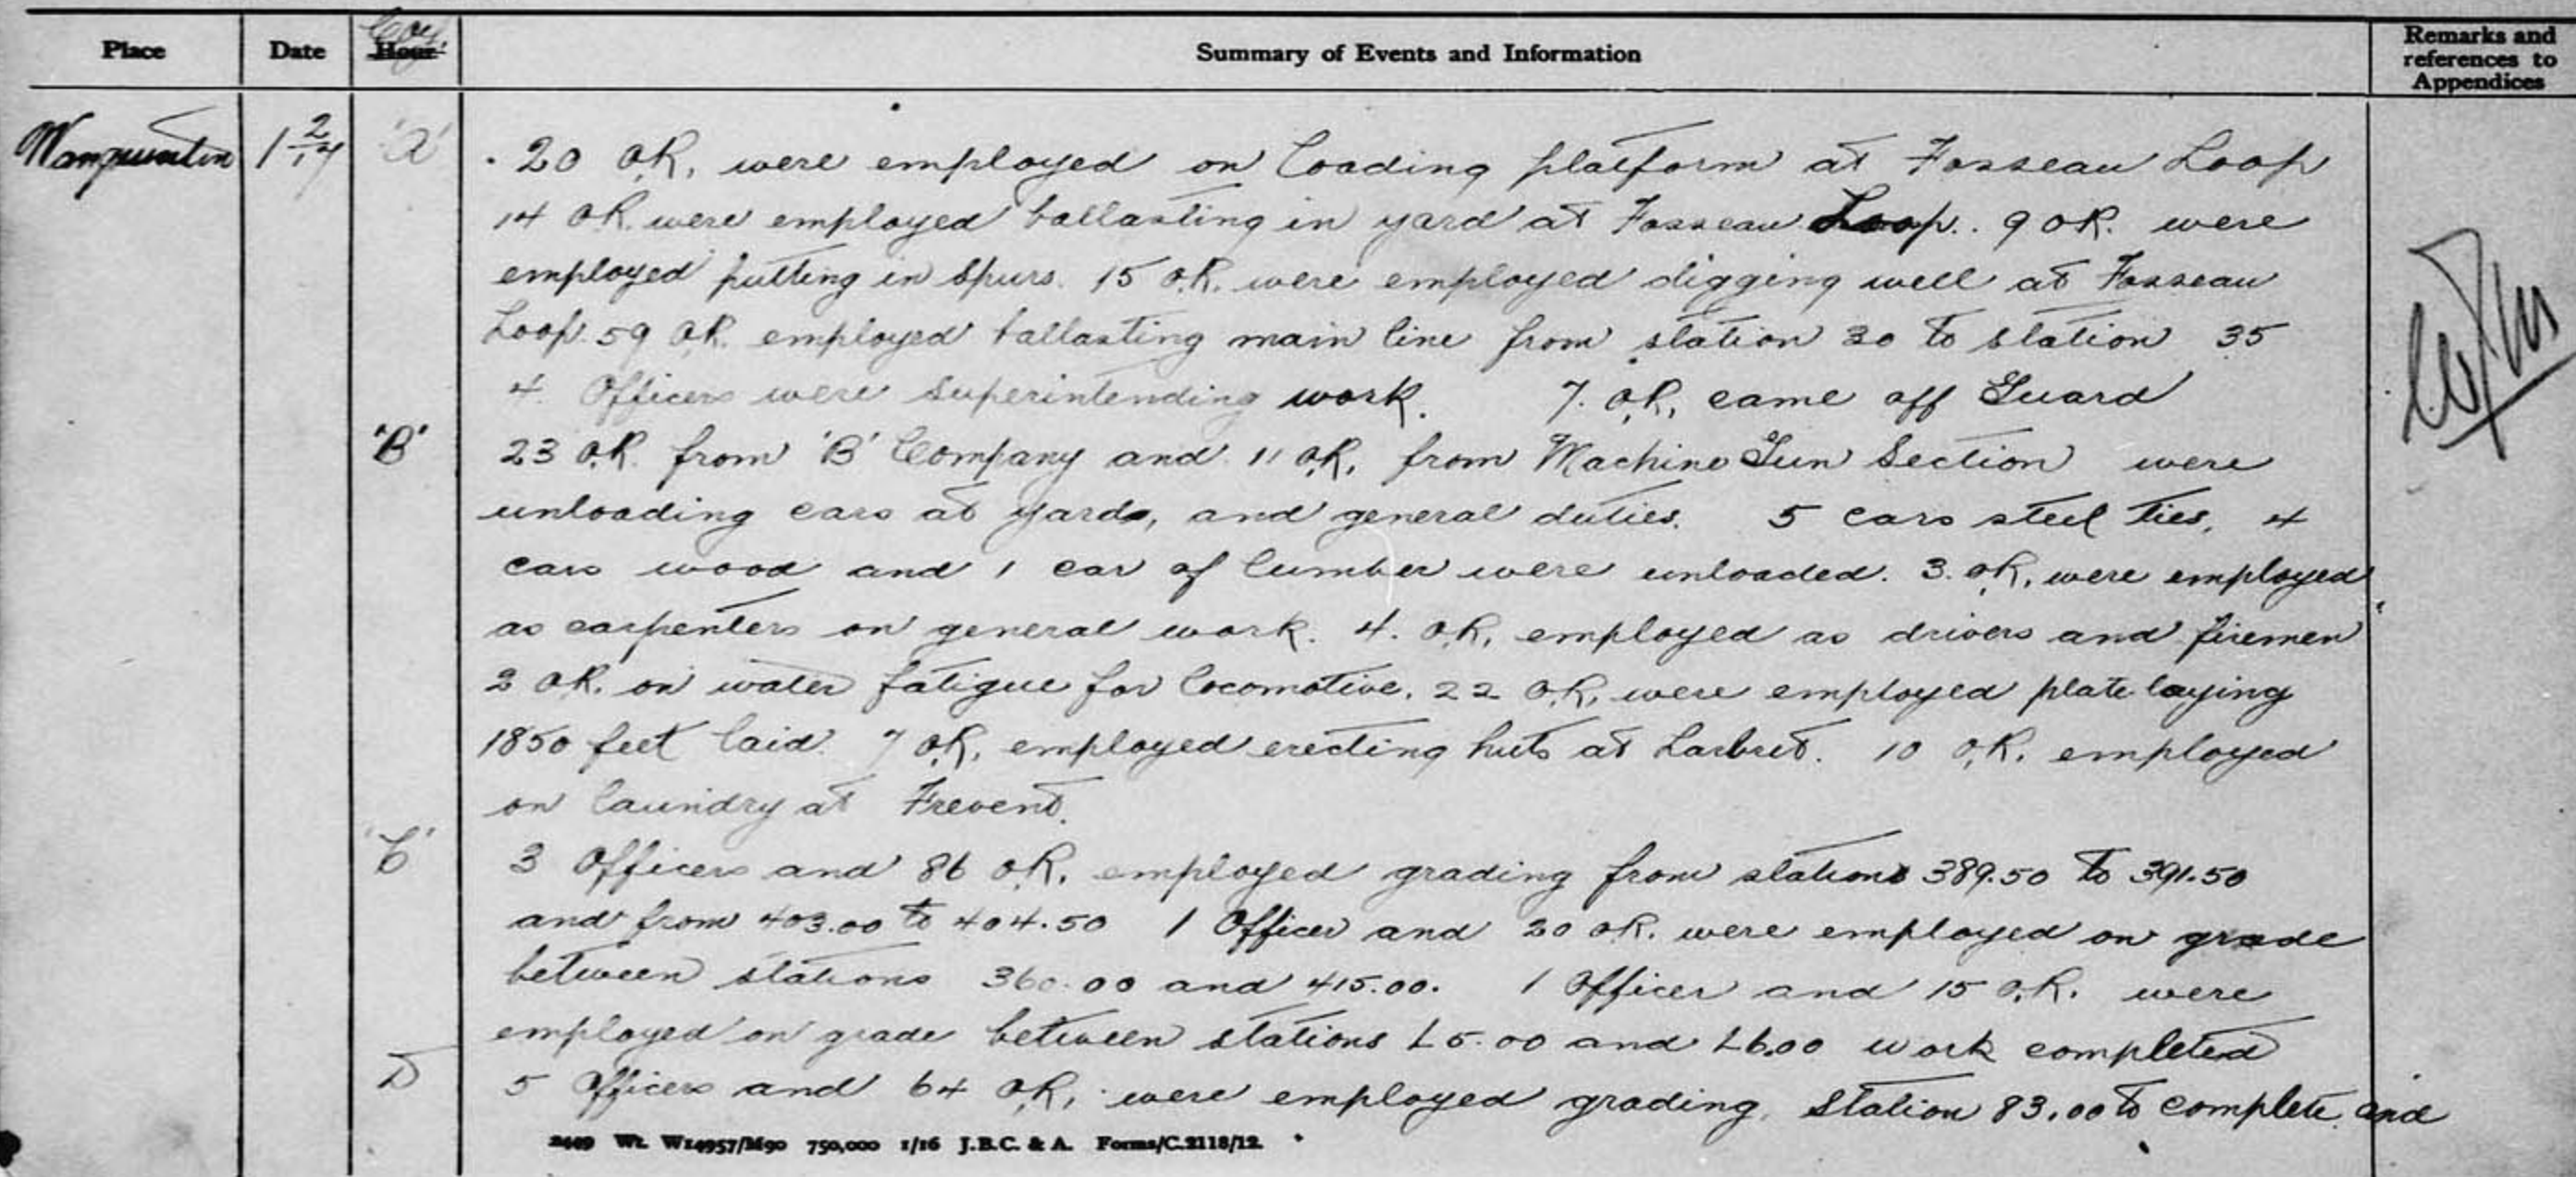 Place Date Hour Coy. Summary of Events and Information Remarks and references to Appendices
Wanquentin 1 2/17 'A' 20 O.R. were employed on loading platform at Fosseau Loop
14 O.R. were employed ballasting in yard at Fosseau Loop. 9 O.R. were
employed putting in spurs. 15 O.R. were employed digging well at Fosseau
Loop. 59 O.R. employed ballasting main line from station 30 to station 35
4 Officers were superintending work. 7. O.R. came off Guard
"B" 23 O.R. from 'B' Company and 11 O.R. from Machine Gun Section were
unloading cars at yards, and general duties. 5 cars steel ties, 4
cars wood and 1 car of lumber were unloaded. 3. O.R. were employed
as carpenters on general work. 4. O.R. employed as drivers and firemen
2 O.R. on water fatigue for locomotive. 22 O.R. were employed plate laying
1850 feet laid. 7 O.R. employed erecting huts at Larbret. 10 O.R. employed
on laundry at Frevent.
'C' 3 Officers and 86 O.R. employed grading from stations 389.50 to 391.50
and from 403.00 to 404.50 1 Officer and 20 O.R. were employed on grade
between stations 360.00 and 415.00. 1 Officer and 15 O.R. were
employed on grade between stations L5.00 and L6.00 work completed
D 5 Officers and 64 O.R. were employed grading. Station 83.00 to complete and
2449 Wt. W14957/M90 750,000 1/16 J.B.C. & A. Forms/C.2118/12.